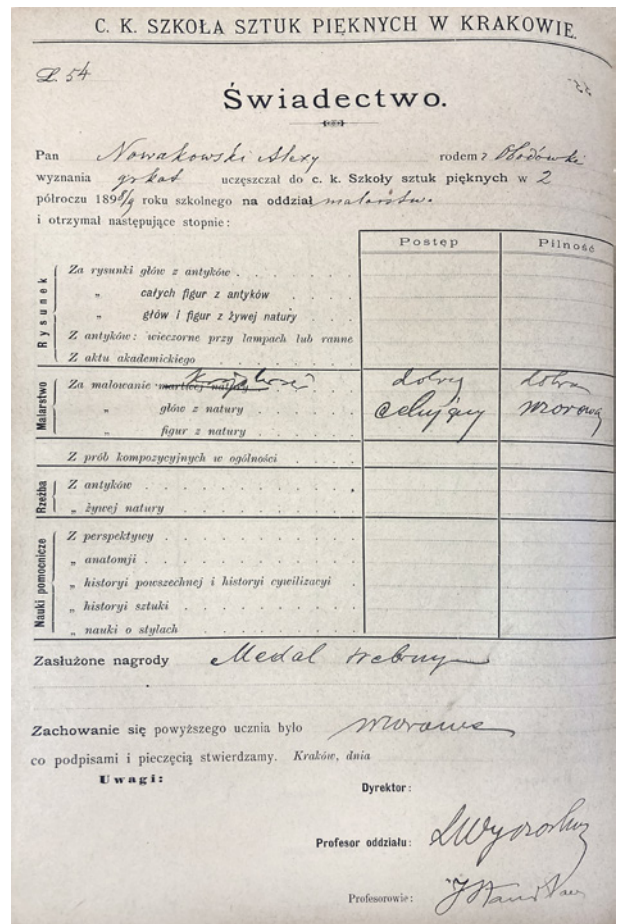 C. K. SZKOŁA SZTUK PIĘKNYCH W KRAKOWIE.
L. 54
Świadectwo.
Pan Nowakowski Alexy rodem z Obodówki
wyznania grkat uczęszczał do c. k. Szkoły sztuk pięknych w 2
półroczu 1898/9 roku szkolnego na oddział malarstw.
i otrzymał następujące stopnie:
Postęp Pilność
Rysunek
Za rysunki głów z antyków
„ całych figur z antyków
„ głów i figur z żywej natury
Z antyków: wieczorne przy lampach lub ranne
Z aktu akademickiego
Malarstwo
Za malowanie martwej natury Krajobraz dobry dobra
„ głów z natury celujący wzorowa
„ figur z natury
Z prób kompozycyjnych w ogólności
Rzeźba
Z antyków
„ żywej natury
Nauki pomocnicze
Z perspektywy
„ anatomji
„ historyi powszechnej i historyi cywilizacyi
„ historyi sztuki
„ nauki o stylach
Zasłużone nagrody Medal srebrny
Zachowanie się powyższego ucznia było wzorowe
co podpisami i pieczęcią stwierdzamy. Kraków, dnia
Uwagi:
Dyrektor:
Profesor oddziału: LWyczółkow
Profesorowie: JStanisław